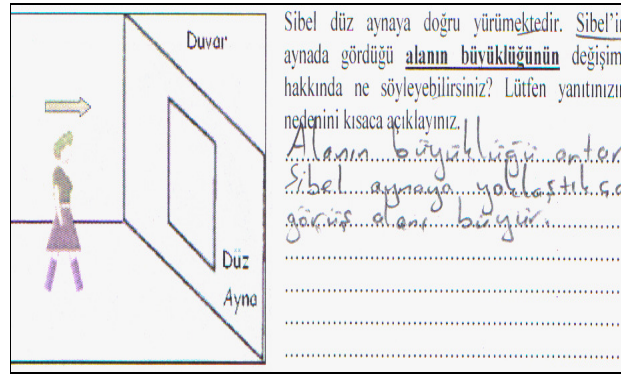 Duvar
Düz
Ayna
Sibel düz aynaya doğru yürümektedir. Sibel'in
aynada gördüğü alanın büyüklüğünün değişim
hakkında ne söyleyebilirsiniz? Lütfen yanıtınızın
nedenini kısaca açıklayınız.
Alanın büyüklüğü artar
Sibel aynaya yaklaştıkça
görüş alanı büyür.